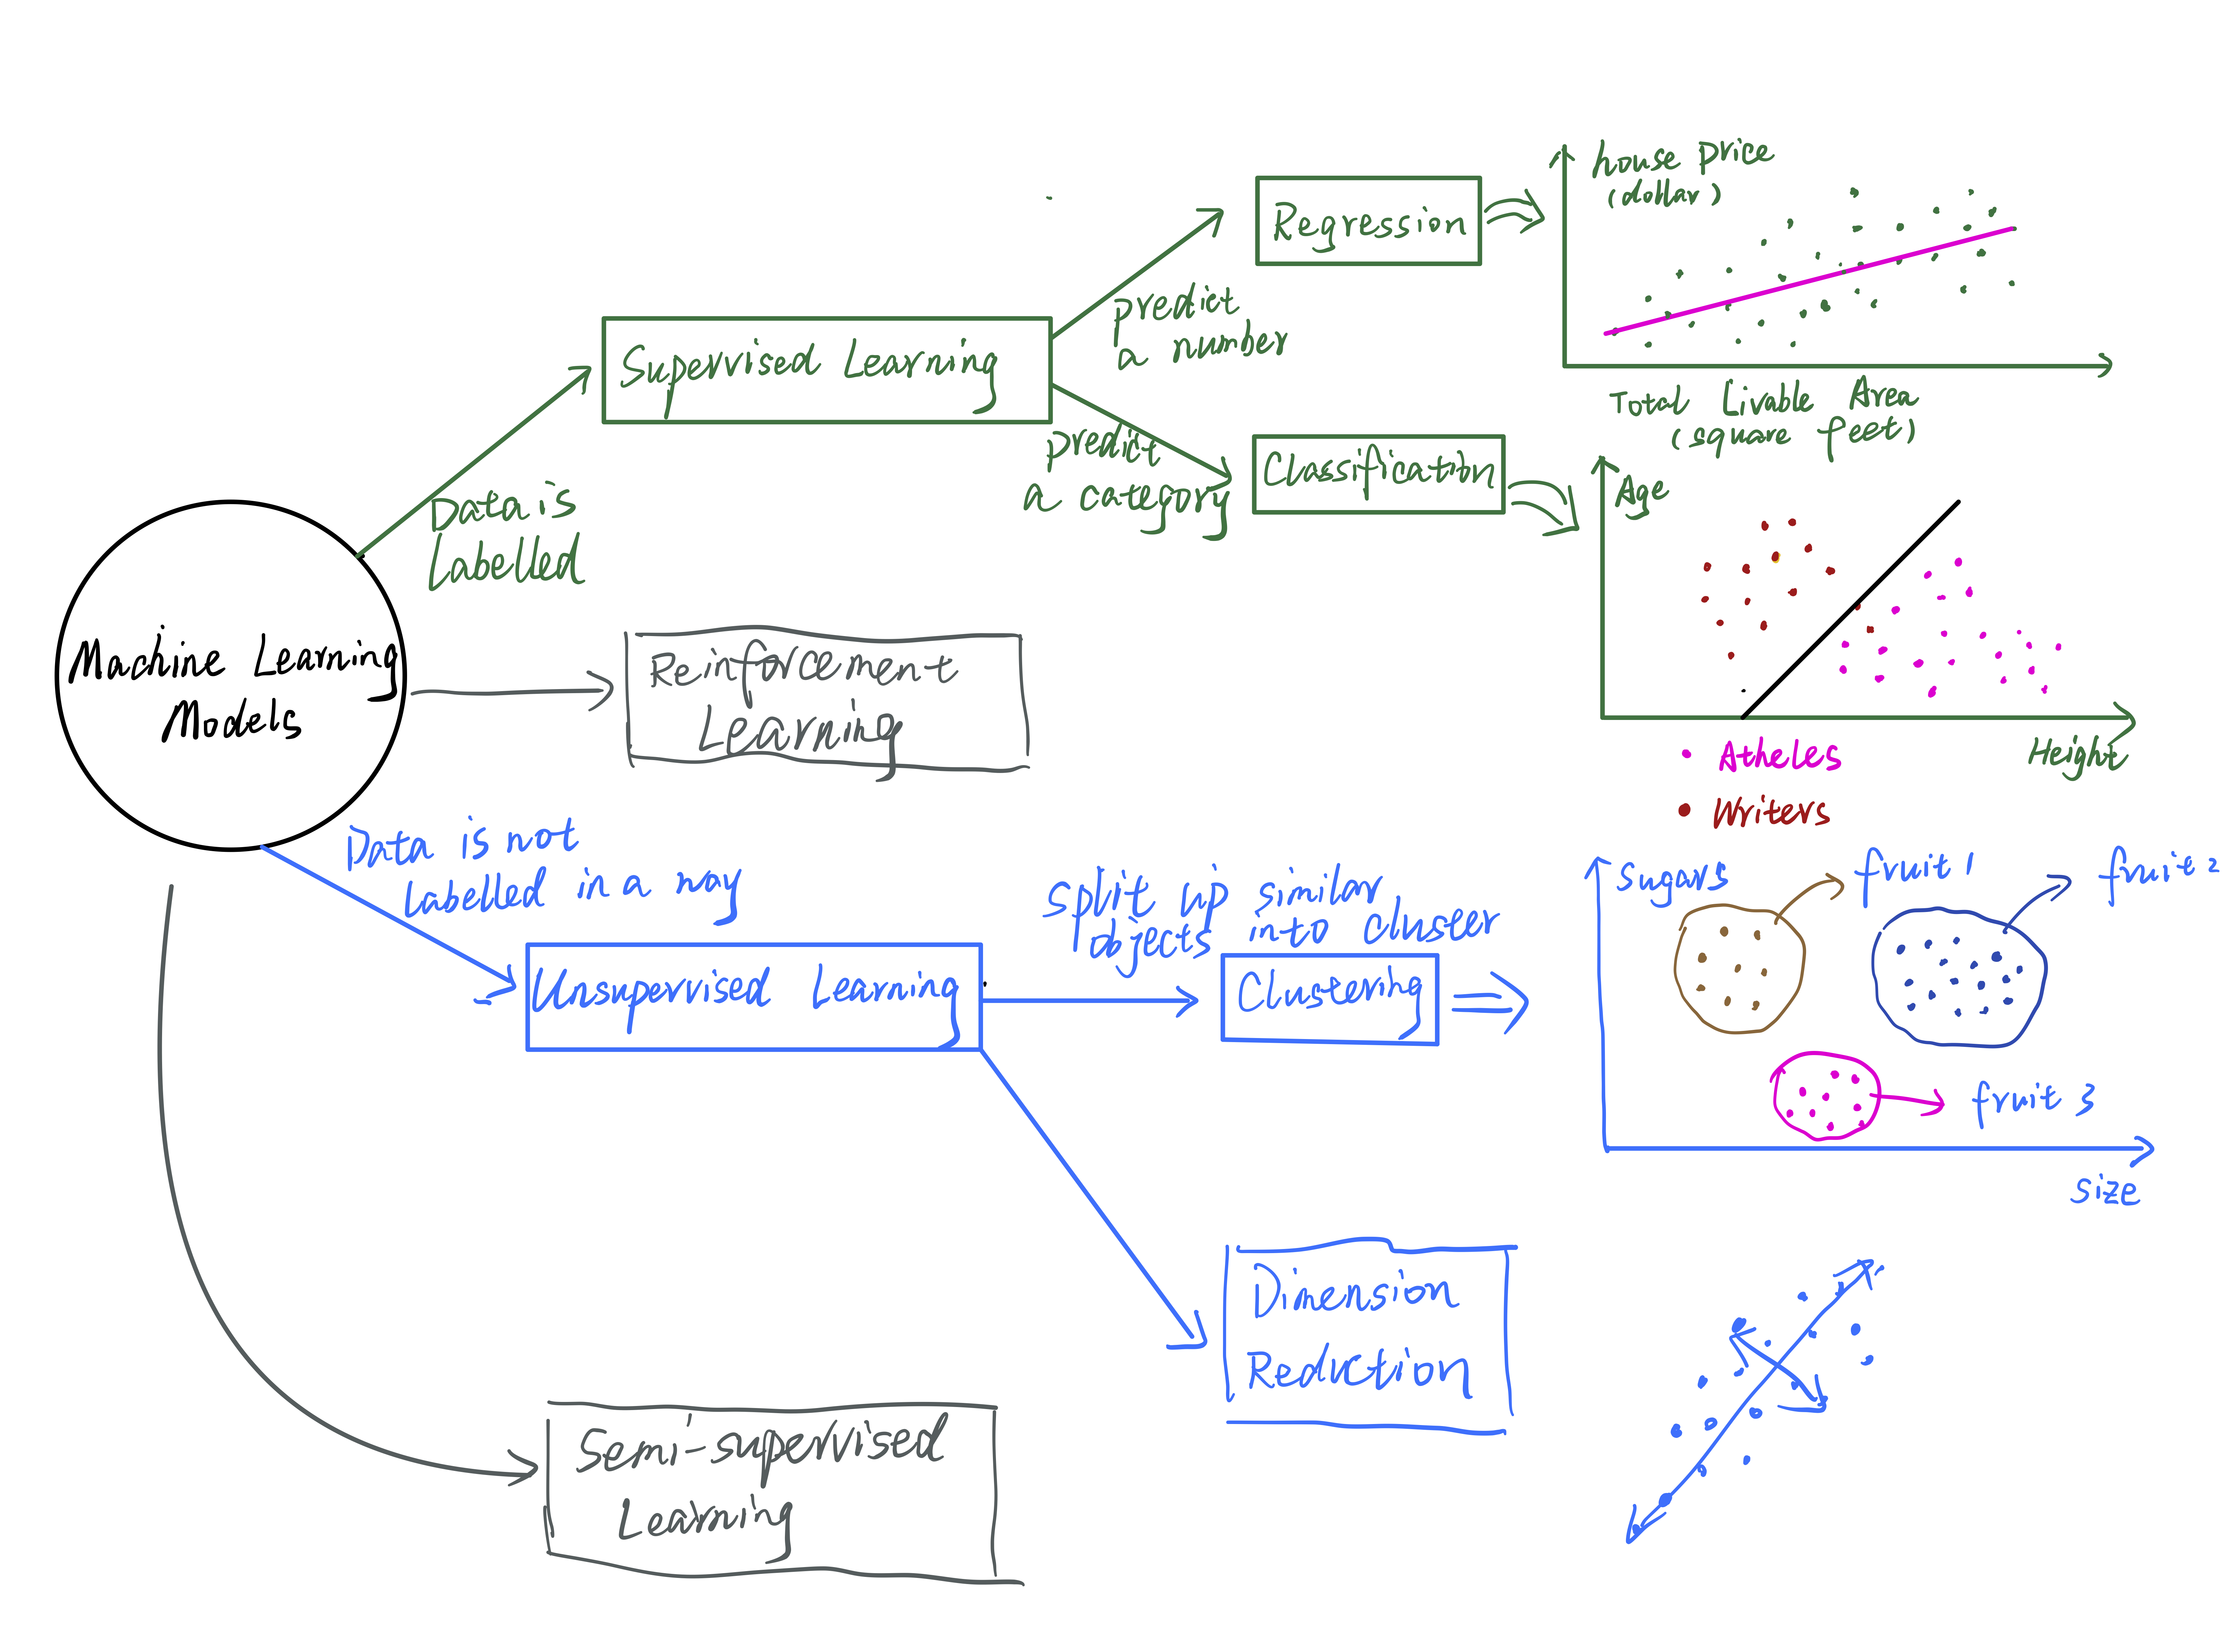 Machine Learning
Models
Data is
Labelled
Supervised Learning
Predict
a number
Regression
house price
(dollar)
Total Livable Area
(square feet)
Predict
a category
Classification
Age
Height
Atheles
Writers
Reinforcement
Learning
Data is not
Labelled in a way
Unsupervised Learning
Split up similar
objects into cluster
Clustering
Sugars
fruit 1
fruit 2
fruit 3
Size
Dimension
Reduction
Semi-supervised
Learning